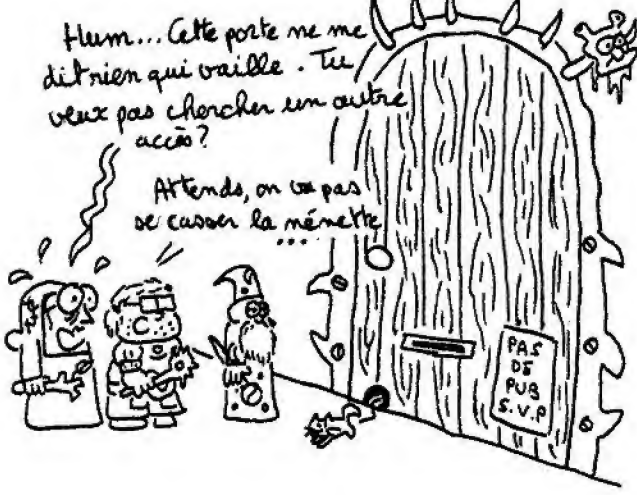 Hum... Cette porte ne me
dit rien qui vaille. Tu
veux pas chercher un autre
accès?
Attends, on va pas
se casser la nénette
...
PAS
DE
PUB
S.V.P